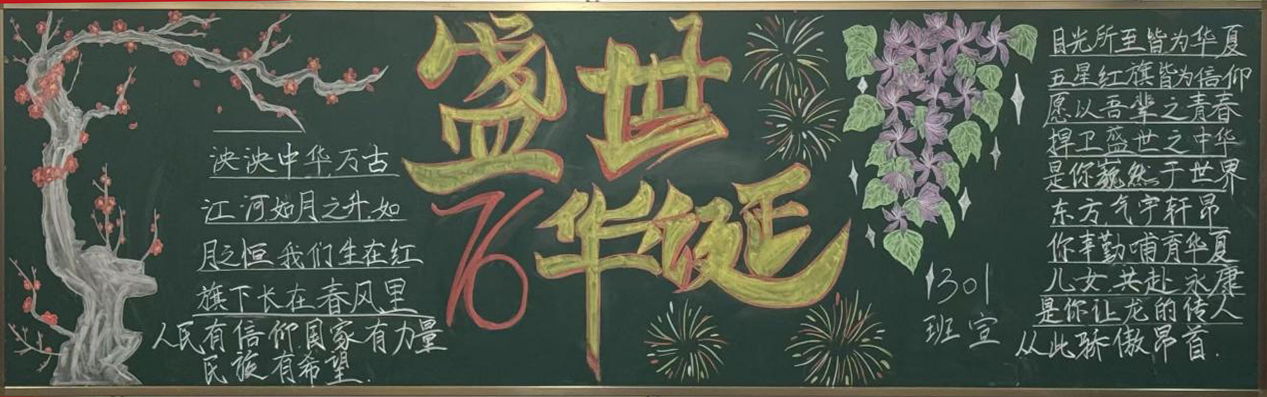 泱泱中华万古
江河如月之升如
月之恒我们生在红
旗下长在春风里
人民有信仰国家有力量
民族有希望.
盛世
76华诞
1301
班宣
目光所至皆为华夏
五星红旗皆为信仰
愿以吾辈之青春
捍卫盛世之中华
是你巍然于世界
东方气宇轩昂
你辛勤哺育华夏
儿女共赴永康
是你让龙的传人
从此骄傲昂首.